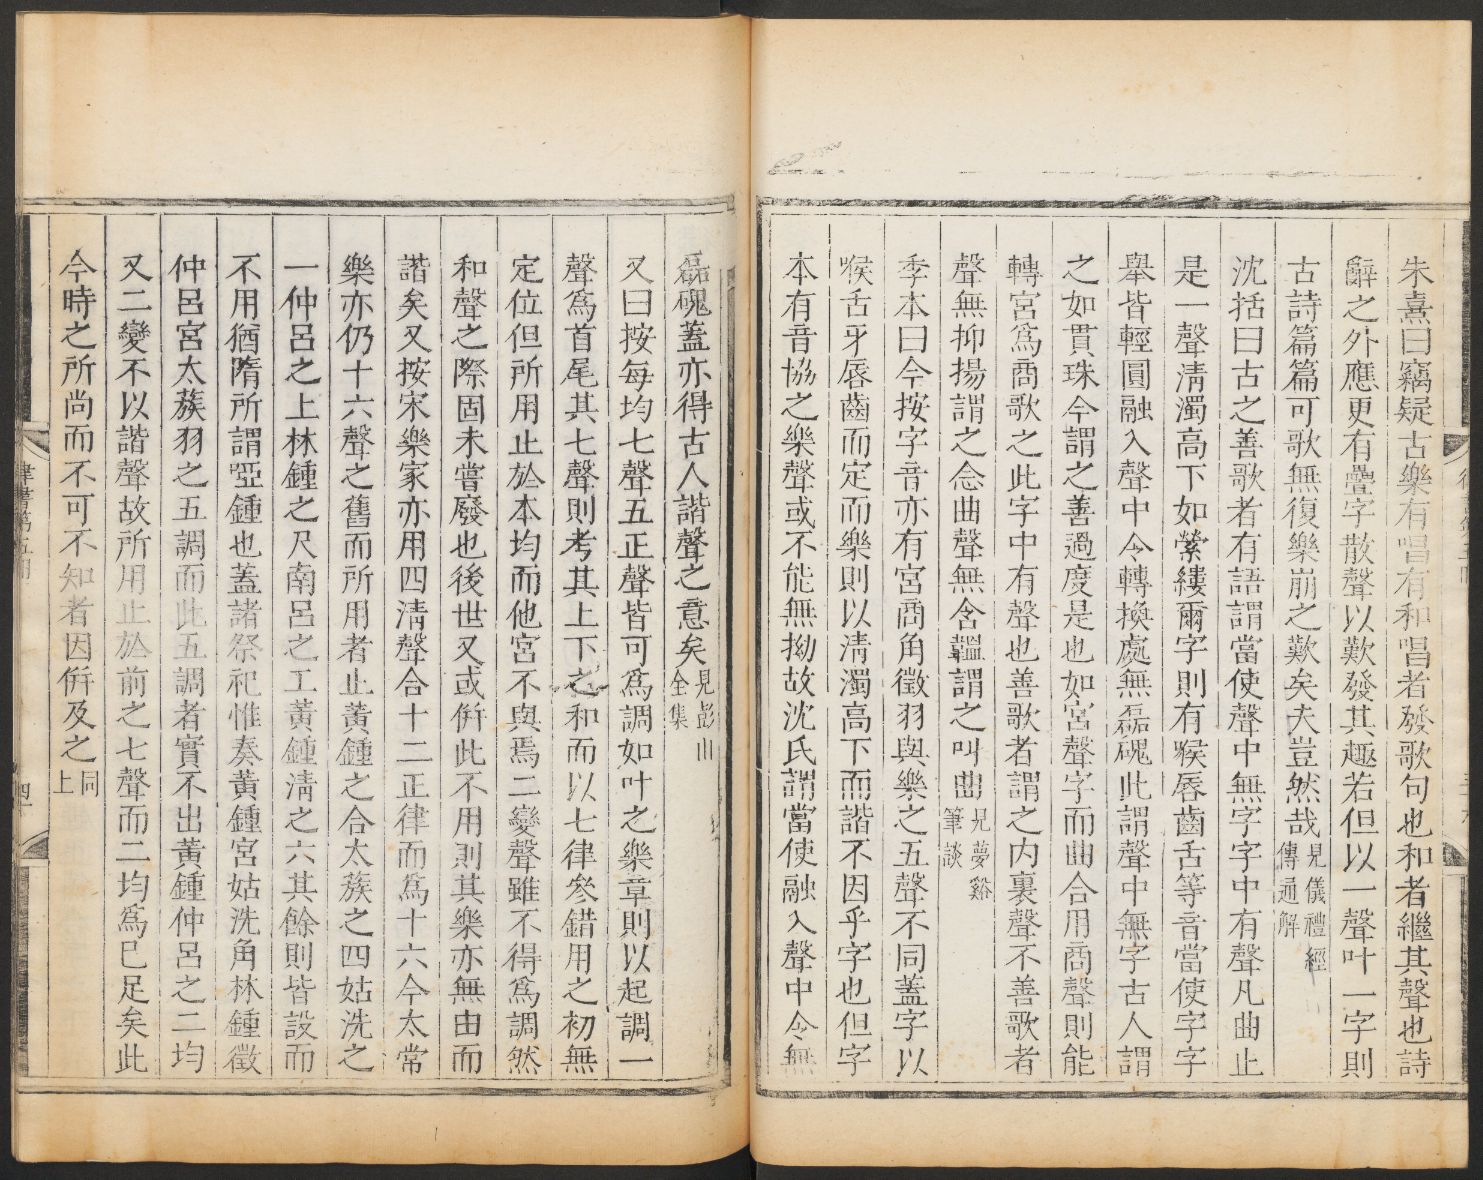 朱熹曰竊疑古樂有唱有和唱者發歌句也和者繼其聲也詩
辭之外應更有疊字散聲以歎發其趣若但以一聲叶一字則
古詩篇篇可歌無復樂崩之歎矣夫豈然哉見儀禮經傳通解
沈括曰古之善歌者有語謂當使聲中無字字中有聲凡曲止
是一聲清濁高下如縈縷爾字則有喉唇齒舌等音當使字字
舉皆輕圓融入聲中令轉換處無磊磈此謂聲中無字古人謂
之如貫珠今謂之善過度是也如宮聲字而曲合用商聲則能
轉宮爲商歌之此字中有聲也善歌者謂之內裏聲不善歌者
聲無抑揚謂之念曲聲無含韞謂之叫曲見夢谿筆談
季本曰今按字音亦有宮商角徵羽與樂之五聲不同蓋字以
喉舌牙唇齒而定而樂則以清濁高下而諧不因乎字也但字
本有音協之樂聲或不能無拗故沈氏謂當使融入聲中令無
磊磈蓋亦得古人諧聲之意矣見彭山全集
又曰按每均七聲五正聲皆可爲調如叶之樂章則以起調一
聲爲首尾其七聲則考其上下之和而以七律參錯用之初無
定位但所用止於本均而他宮不與焉二變聲雖不得爲調然
和聲之際固未嘗廢也後世又或倂此不用則其樂亦無由而
諧矣又按宋樂家亦用四清聲合十二正律而爲十六今太常
樂亦仍十六聲之舊而所用者止黃鍾之合太蔟之四姑洗之
一仲呂之上林鍾之尺南呂之工黃鍾清之六其餘則皆設而
不用猶隋所謂啞鍾也蓋諸祭祀惟奏黃鍾宮姑洗角林鍾徵
仲呂宮太蔟羽之五調而此五調者實不出黃鍾仲呂之二均
又二變不以諧聲故所用止於前之七聲而二均爲已足矣此
今時之所尚而不可不知者因倂及之同上